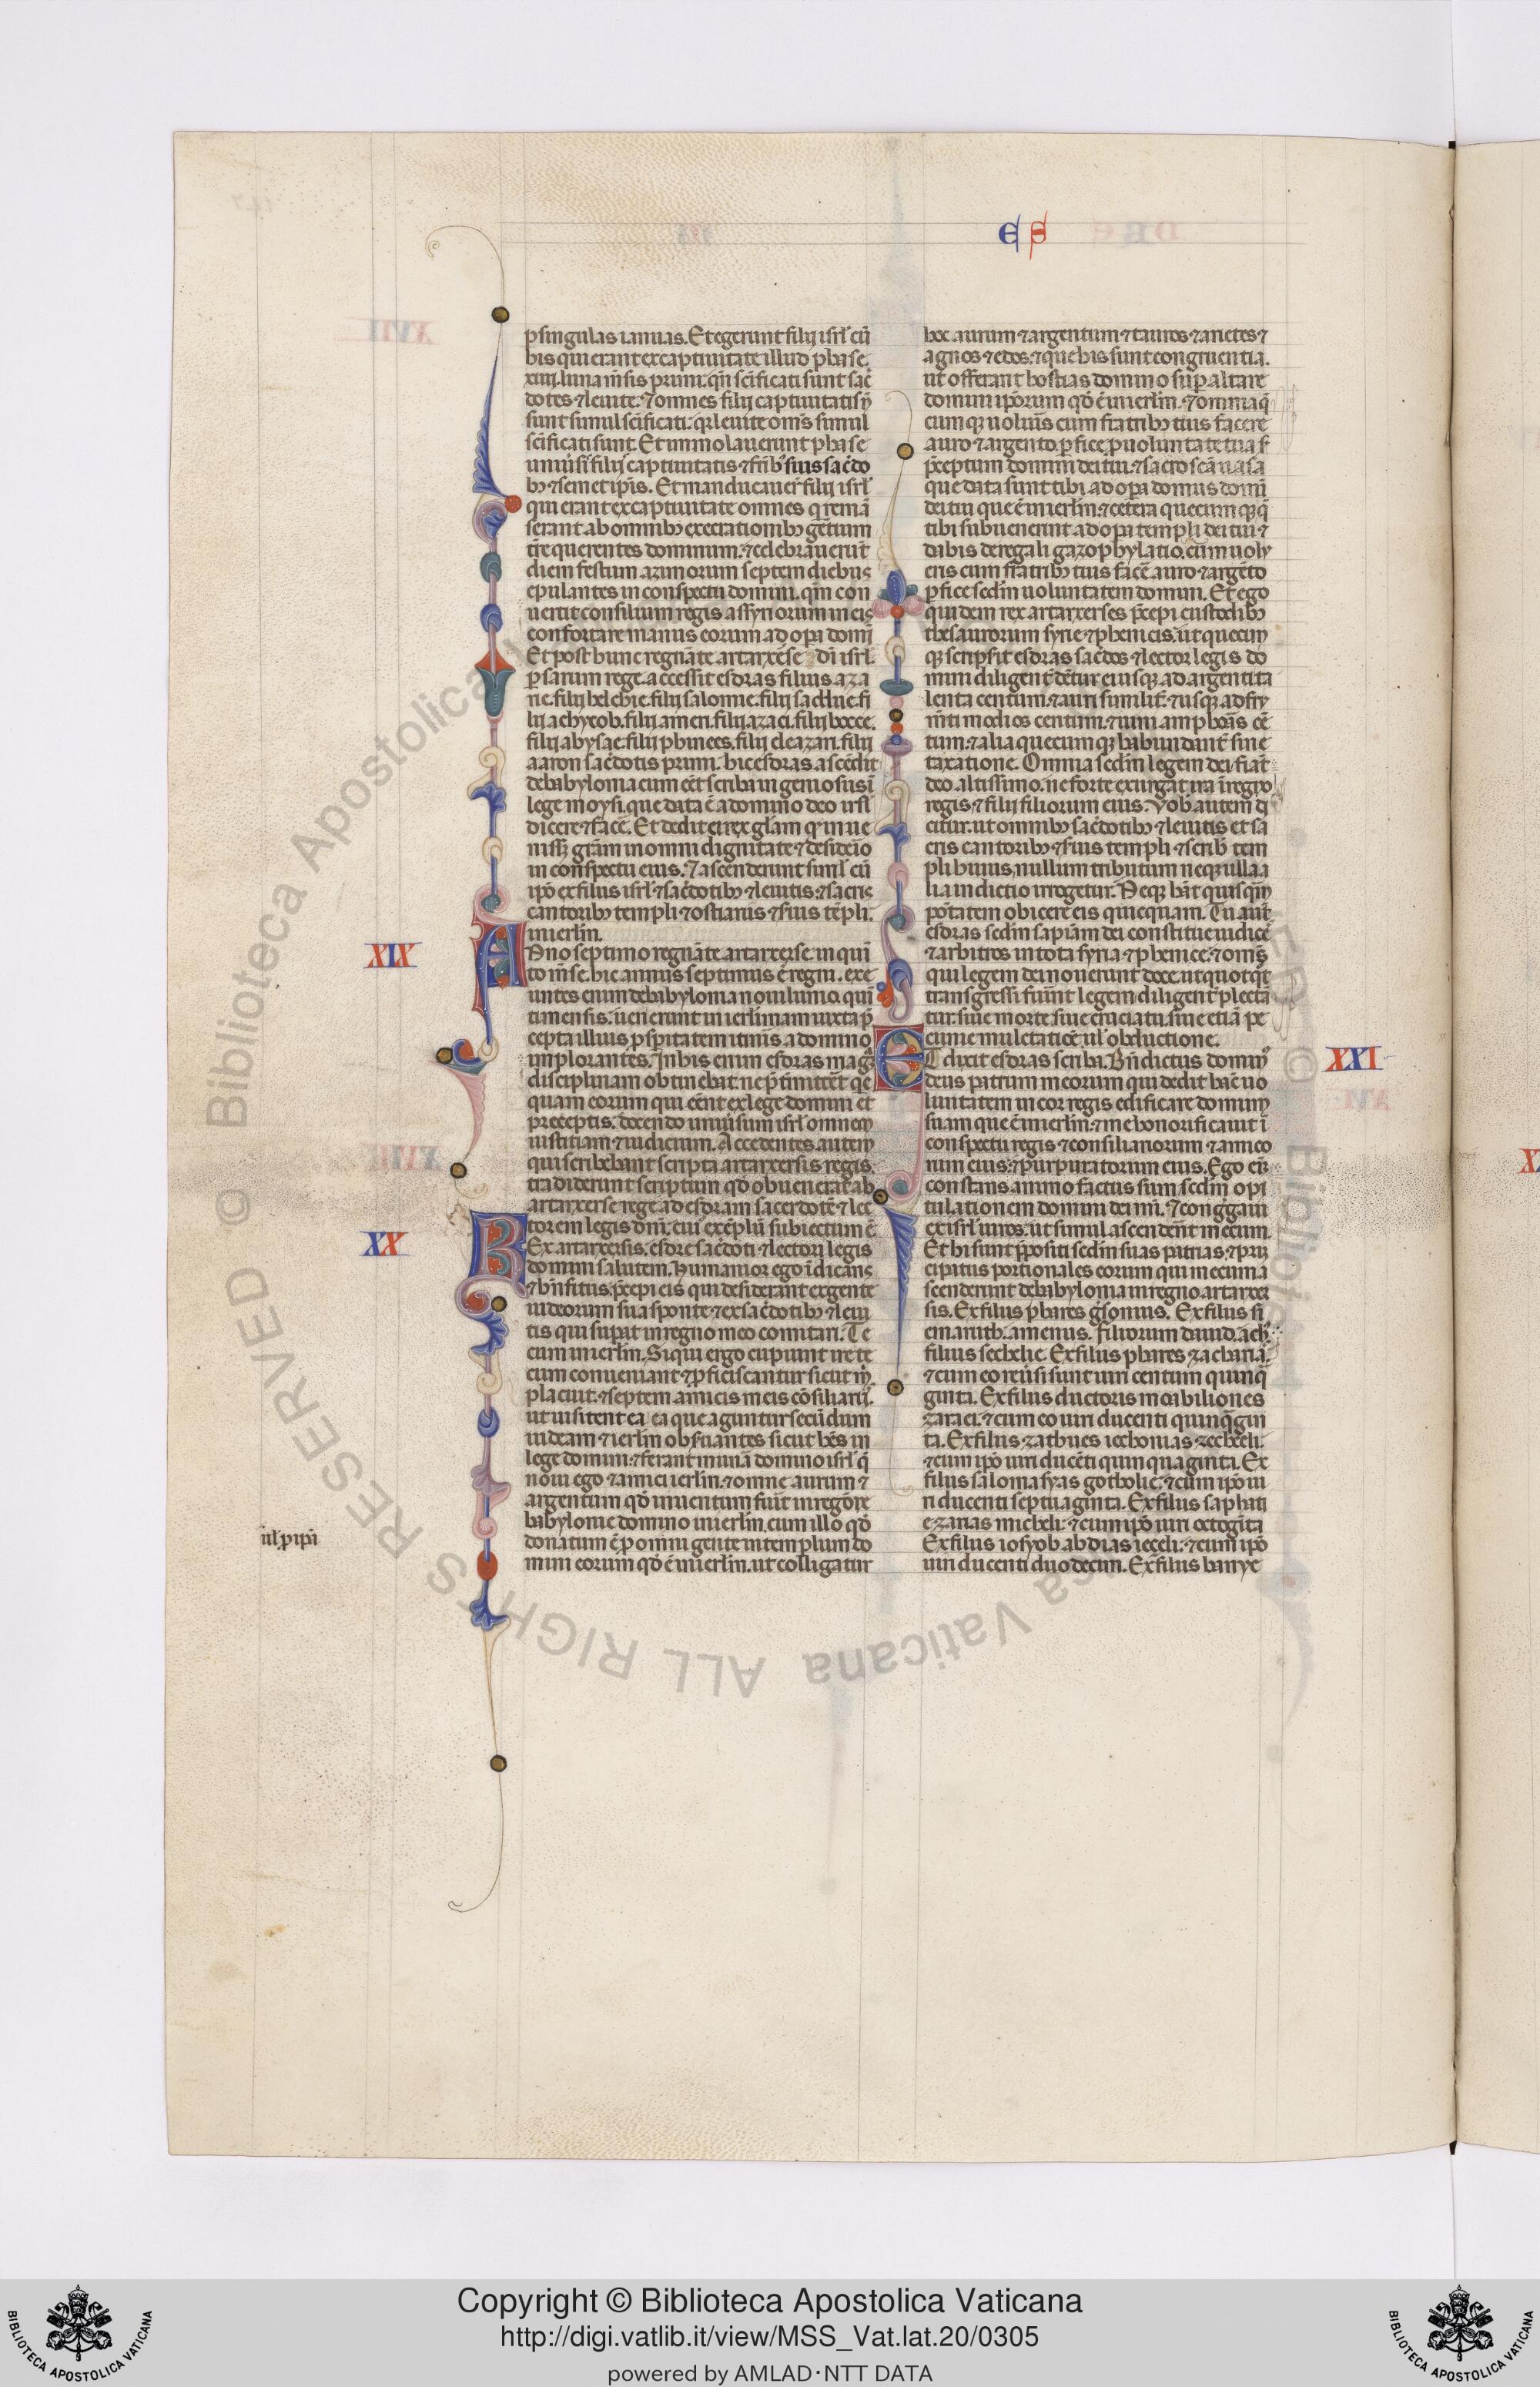 ES
p singulas ianuas. Et egerunt filij isrl' cū
his qui erant ex captiuitate illud phase.
xiiij. luna mēsis primi. qn̄ scīficati sunt sac̄
dotes ⁊ leuite. ⁊ omnes filij captiuitatis ñ
sunt simul scīficati. qr leuite om̄s simul
scīficati sunt. Et immolauerunt phase
uniūsi filij captiuitatis ⁊ fr̄ib; suis sac̄do
b; ⁊ semet ip̄is. Et manducauer̄ filij isrl'
qui erant ex captiuitate omnes q remā
serant ab omnib; execrationib; gētium
tr̄e querentes dominum. ⁊ celebrauerūt
diem festum azimorum septem diebus
epulantes in conspectu domini. qm̄ con
uertit consilium regis assyriorum in eis
confortare manus eorum ad opa domī
Et post hunc regnāte artarxerse dī isrl'.
psarum rege. accessit esdras filius aza
rie. filij helchie. filij salome. filij sadduc. fi
lij achytob. filij ameri. filij azaei. filij bocce.
filij abysae. filij phinees. filij eleazari. filij
aaron sac̄dotis primi. hic esdras ascēdit
de babylonia cum eēt scriba ingeniosus ī
lege moysi. que data ē a domino deo isrl'
dicere ⁊ facē. Et dedit ei rex gl̄am q in ue
nisset grām in omni dignitate ⁊ desidēio
in conspectu eius. ⁊ ascenderunt siml' cū
ip̄o ex filiis isrl' ⁊ sac̄dotib; ⁊ leuitis. ⁊ sacris
cantorib; templi ⁊ ostiariis ⁊ suis tēpli.
in ierlm̄.
XIX
ANno septimo regnāte artarxerse in quī
to mēse. hic annus septimus ē regni. exe
untes enim de babylonia nouilunio quī
ti mensis. uenerunt in ierlimam iuxta p̄
cepta illius pspitatem itinis a domino
implorantes. In his enim esdras magā
disciplinam obtinebat. ne p̄timittēt qc
quam eorum qui eēnt ex lege domini et
preceptis. docendo uniūsum isrl' omnem
iustitiam ⁊ iudicium. Accedentes autem
qui scribebant scripta artarxersis regis.
tradiderunt scriptum qd̄ obuenerat ab
artarxerse rege ad esdram sacerdotē ⁊ lec
torem legis dn̄i. cui exēplū subiectum ē
XX
REx artarxersis. esdre sac̄doti ⁊ lectori legis
domini salutem. Humanior ego īdicans
⁊ bn̄fitiis. p̄cepi eis qui desiderant ex gente
iudeorum sua sponte. ⁊ ex sac̄dotib; ⁊ leui
tis qui sunt in regno meo comitari. Te
cum in ierlm̄. Si qui ergo cupiunt ire te
cum conueniant ⁊ pficiscantur sicut m̄
placuit. ⁊ septem amicis meis cōsiliarij.
ut uisitent ea. ea que aguntur secūdum
iudeam ⁊ ierlm̄ obs̄uantes sicut hēs in
lege domini. ⁊ ferant munā domino isrl' q
noui ego ⁊ amici ierlm̄. ⁊ omne aurum ⁊
argentum qd̄ inuentum fuīt in regōre
babylonie domino in ierlm̄. cum illo qd̄
ul' p ip̄a
donatum ē p omni gente in templum do
mini eorum qd̄ ē in ierlm̄. ut colligatur
hoc aurum ⁊ argentum ⁊ tauros ⁊ arietes ⁊
agnos ⁊ edos. ⁊ que his sunt congruentia.
ut offerant hostias domino sup altare
domini ip̄orum qd̄ ē in ierlm̄. ⁊ omnia q̄
cumq; uolūis cum fratrib; tuis facere
auro ⁊ argento. pfice p uoluntate tua f
p̄ceptum domini dei tui. ⁊ sacrosc̄a uasa
que data sunt tibi ad opa domus domī
dei tui que ē in ierlm̄. ⁊ cetera quecumq; q̄
tibi subuenerint ad opa templi dei tui. ⁊
dabis de regali gazophylatio. cum uolu
eris cum fratrib; tuis facē auro ⁊ argēto
pfice scd̄m uoluntatem domini. Et ego
quidem rex artarxerses p̄cepi custodib;
thesaurorum syrie ⁊ phenicis. ut quecum
q; scripsit esdras sac̄dos ⁊ lector legis do
mini diligent̄ dētur eius q; ad argenti ta
lenta centum. ⁊ auri similit̄. ⁊ usq; ad fru
m̄ti modios centum. ⁊ uini amphoras cē
tum. ⁊ alia quecumq; habundant̄ sine
taxatione. Omnia scd̄m legem dei fiat̄
deo altissimo. ne forte exurgat ira ī regno
regis ⁊ filij filiorum eius. Vob autem di
citur. ut omnib; sac̄dotib; ⁊ leuitis et sa
cris cantorib; ⁊ suis templi ⁊ scrib tem
pli huius. nullum tributum neq; ulla a
lia indictio irrogetur. Neq; hāt quisqm̄
pōtatem obicere eis quicquam. Tu aut̄
esdras scd̄m sapiam̄ dei constitue iudicē
⁊ arbitros in tota syria ⁊ phenice. ⁊ om̄s
qui legem dei nouerunt doce. ut quotqt̄
transgressi fuīnt legem diligent̄ plectā
tur. siue morte siue cruciatu. siue etiā pe
cunie multatiōe. ul' obductione.
XXI
ET dixit esdras scriba. Bn̄dictus dominus
deus patrum meorum qui dedit hāc uo
luntatem in cor regis edificare domum
suam que ē in ierlm̄. ⁊ me honorificauit ī
conspectu regis ⁊ consiliariorum ⁊ amico
rum eius. ⁊ purpuratorum eius. Ego eīz
constans animo factus sum scd̄m opi
tulationem domini dei mī. ⁊ congͥgaui
ex isrl' uiros. ut simul ascendēnt mecum
Et hi sunt p̄positi scd̄m suas pitrias. ⁊ prin
cipatus portionales eorum qui mecum a
scenderunt de babylonia in regno artarxer
sis. Ex filiis phares gersomus. Ex filiis si
emarith. amenus. filiorum dauid. ach
filius sechelie. Ex filiis phares zacharia.
⁊ cum eo reūsi sunt uiri centum quinq̄
ginta. Ex filiis ductoris moabiliones
zaraei. ⁊ cum eo uiri ducenti quinq̄gin
ta. Ex filiis zathues iechonias zecheeli.
⁊ cum ip̄o uiri ducēti quinquaginta. Ex
filiis salomasyas gotholie. ⁊ cum ip̄o ui
ri ducenti septuaginta. Ex filiis saphati
e. zarias micheli. ⁊ cum ip̄o uiri octogīta
Ex filiis iosyob abdias ieceli. ⁊ cum ip̄o
uiri ducenti duodecim. Ex filiis banye
Copyright © Biblioteca Apostolica Vaticana
http://digi.vatlib.it/view/MSS_Vat.lat.20/0305
powered by AMLAD·NTT DATA